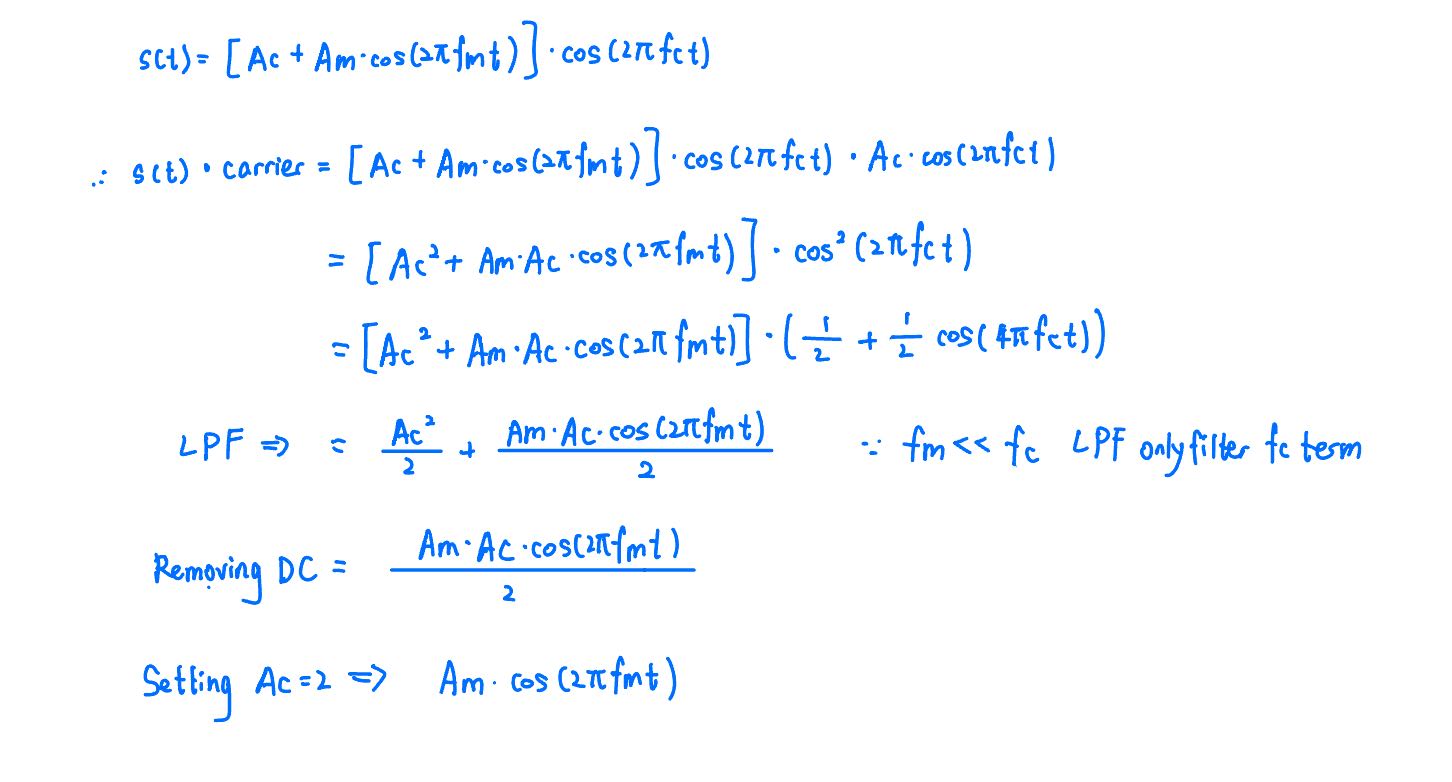 s(t) = [Ac + Am·cos(2πfmt)]·cos(2πfct)
∴ s(t)·carrier = [Ac + Am·cos(2πfmt)]·cos(2πfct)·Ac·cos(2πfct)
= [Ac² + Am·Ac·cos(2πfmt)]·cos²(2πfct)
= [Ac² + Am·Ac·cos(2πfmt)]·(1/2 + 1/2 cos(4πfct))
LPF ⇒ = Ac²/2 + Am·Ac·cos(2πfmt)/2 ∵ fm << fc LPF only filter fc term
Removing DC = Am·Ac·cos(2πfmt)/2
Setting Ac = 2 ⇒ Am·cos(2πfmt)